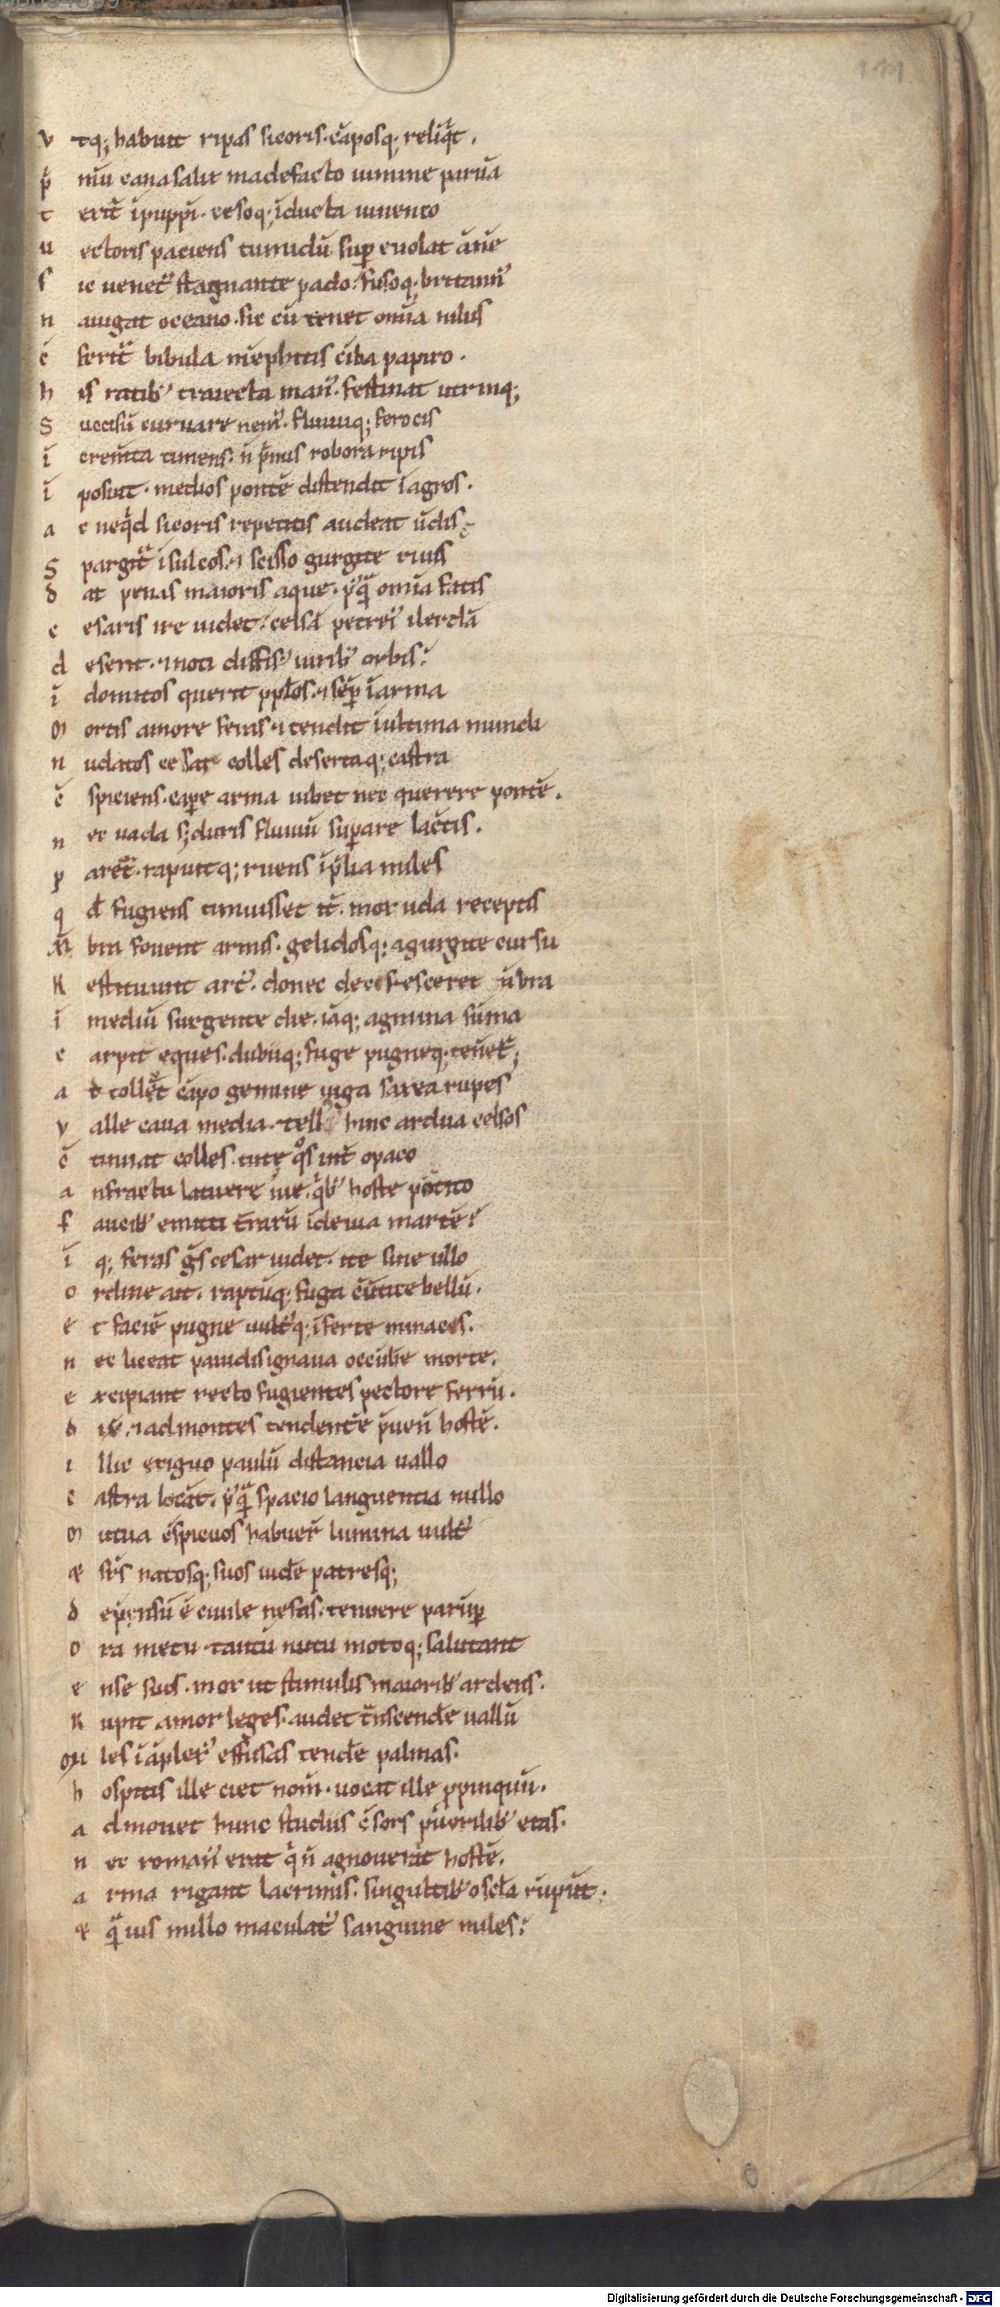 111
V tq; habuit ripas sicoris. cāposq; reliq̄t.
p̄ mū cana salix madefacto uimine paruā
t exit̄ ī puppī. cesoq; īducta iuuenco
u ectoris paciens tumidū sup̱ euolat ānē
s ic uenet᷒ stagnante pado. fusoq; britann᷒
n auigat oceano. sic cū tenet om̄ia nilus
c ōserit᷒ bibula memphitis cība papiro.
h is ratib᷒ traiecta man᷒. festinat utrinq;
S uccisū curuare nem᷒. fluuiiq; ferocis
i crem̄ta timens. n̄ p̄mis robora ripis
i posuit. medios pontē distendit ī agros.
a c neq̇d sicoris repetitis audeat ūdis
S pargit᷒ ī sulcos. ⁊ scisso gurgite riuis
d at penas maioris aque. p᷒q̄ om̄ia fatis
c esaris ire uidet. celsā petrei᷒ ilerdā
d eserit. ⁊ noti diffis᷒ uirib᷒ orbis.
i domitos querit pp̄los. ⁊ sēp̱ ī arma
m ortis amore feras. ⁊ tendit ī ultima mundi
n udatos cesar colles desertaq; castra
c ōspiciens. cap̱e arma iubet nec querere pontē.
n ec uada s; duris fluuiū sup̱are lac̄tis.
p aret᷒. rapuitq; ruens ī p̄lia miles
q d̄ fugiens timuisset it̄. mox uda receptis
m bra fouent armis. gelidosq; a gurgite cursu
R estituunt art᷒. donec decresceret ūbra
i medium surgente die. iāq; agmina sūma
c arpit eques. dubiiq; fuge pugneq; tenet᷒;
a ttollet᷒ cāpo gemine iuga saxea rupes
v alle caua media. tell᷒ hinc ardua celsos
c ōtinuat colles. tute q̊s int̄ opaco
a nfractu latuere uie. q̇b᷒ hoste potito
f aucib᷒ emitti t̄rarū ī deuia martē
i q; feras gēs cesar uidet. ite sine ullo
o rdine ait. raptāq; fuga cōu̅tite bellū.
e t faciē pugne uult᷒q; īferte minaces.
n ec liceat pauidis ignaua occūbe᷒ morte.
e xcipiant recto fugientes pectore ferrū.
d ix̄. ⁊ ad montes tendentē p̄uen̄ hostē.
i llic exiguo paulū distancia uallo
c astra locāt. p᷒q̄ spacio languentia nullo
m utua cōspicuos habuer̄ lumina uult᷒
& fr̄s natosq; suos uide᷒ patresq;
d ep̄nsū ē ciuile nefas. tenuere parūp̱
o ra metu tantū nutu motoq; salutant
e nse suos. mox ut stimulis maiorib᷒ ardens.
R upit amor leges. audet t̄nscende᷒ uallū
m les ī āplex᷒ effusas tende᷒ palmas.
h ospitis ille ciet nom̄. uocat ille p̱pinquū.
a dmonet hunc studiis cōsors p᷒erilib᷒ etas.
n ec roman᷒ erat q̇ n̄ agnouerat hostē.
a rma rigant lacrimis. singultib᷒ oscl̄a rūpūt.
& q̄ͣuis nullo maculat᷒ sanguine miles.
Digitalisierung gefördert durch die Deutsche Forschungsgemeinschaft - DFG